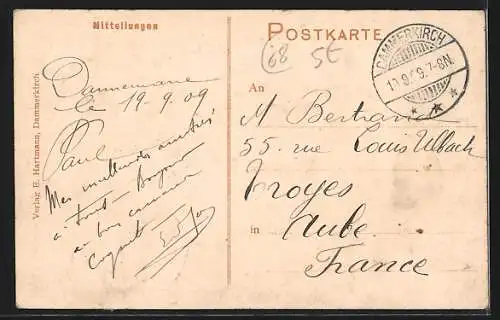 Mitteilungen
POSTKARTE
Verlag E. Hartmann, Dammerkirch
(68
5€
DAMMERKIRCH
19.9.09.7-8N.
Dannemarie
le 19-9-09
Paul
Mes meilleures amitiés
à tout
au bon
An
M Bertrand
55. rue Louis Ulbach
Troyes
in Aube
France